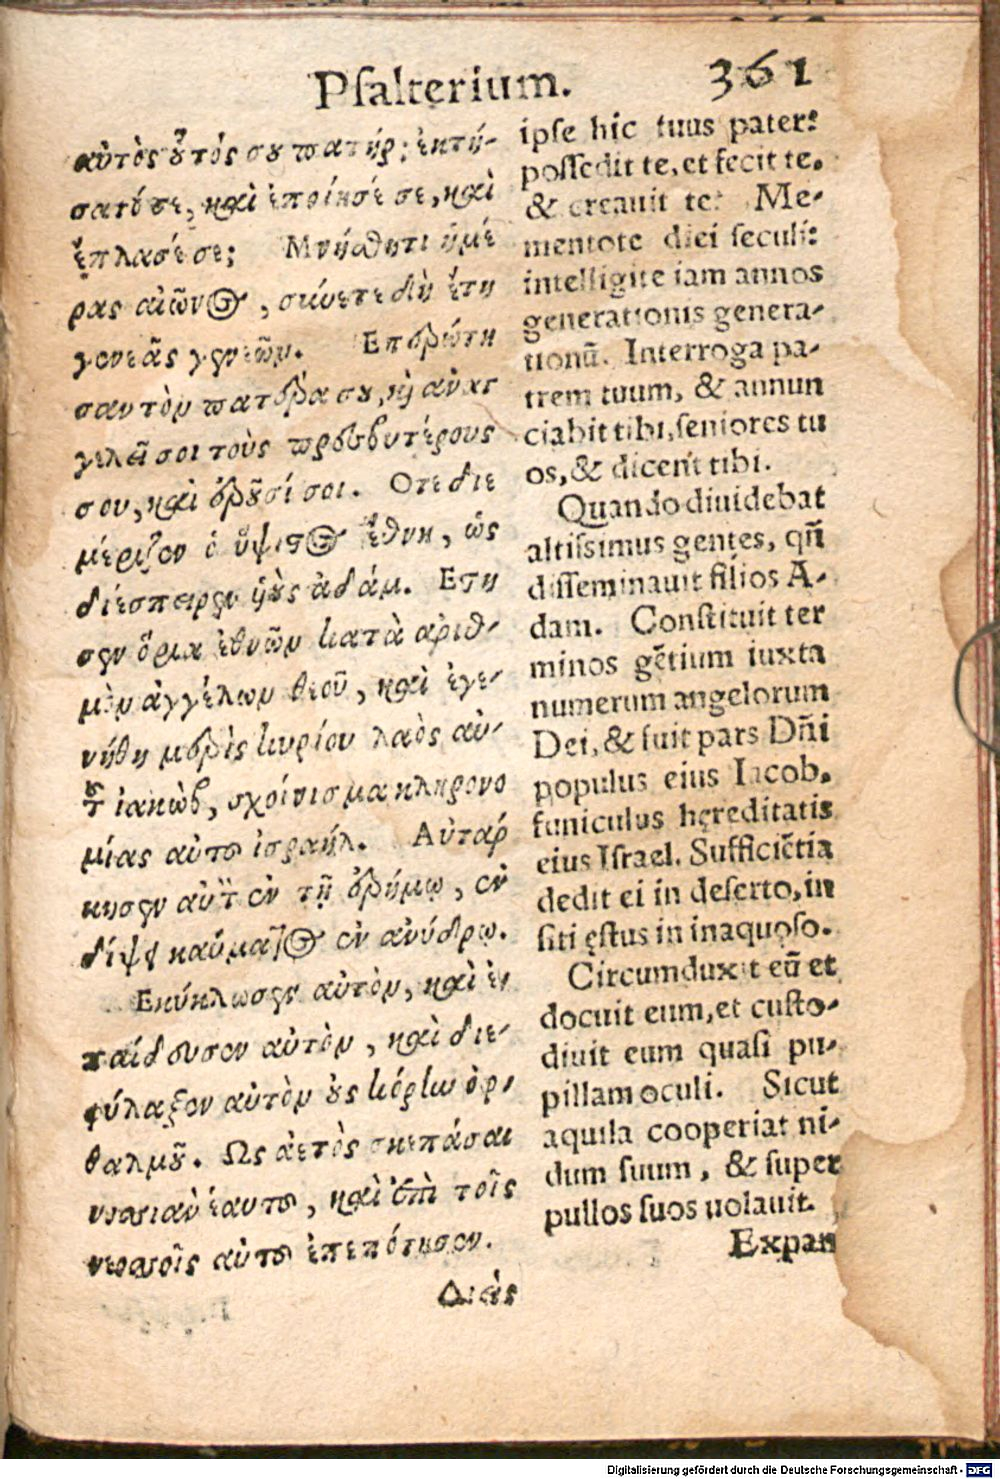 Pſalterium. 361
αὐτὸς οὗτός σου πατήρ; ἐκτή-
σατό σε, καὶ ἐποίησέ σε, καὶ
ἔπλασέ σε; Μνήσθητι ἡμέ
ρας αἰῶνος, σύνετε δὴ ἔτη
γενεᾶς γενεῶν. Επερώτη
σον τὸν πατέρα σου, καὶ ἀναγ
γελεῖ σοι τοὺς πρεσβυτέρους
σου, καὶ ἐροῦσί σοι. Οτε διε
μέριζεν ὁ ὕψιστος ἔθνη, ὡς
διέσπειρεν υἱοὺς ἀδάμ. Εστη
σεν ὅρια ἐθνῶν κατὰ ἀριθ-
μὸν ἀγγέλων θεοῦ, καὶ ἐγε-
νήθη μερὶς κυρίου λαὸς αὐ-
τοῦ ἰακὼβ, σχοίνισμα κληρονο
μίας αὐτοῦ ἰσραήλ. Αὐτάρ
κησεν αὐτὸν ἐν τῇ ἐρήμῳ, ἐν
δίψει καύματος ἐν ἀνύδρῳ.
Εκύκλωσεν αὐτὸν, καὶ ἐ-
παίδευσεν αὐτὸν, καὶ διε-
φύλαξεν αὐτὸν ὡς κόρίω ὀφ-
θαλμοῦ. Ως ἀετὸς σκεπάσαι
νοσσιὰν ἑαυτοῦ, καὶ ἐπὶ τοῖς
νεοσσοῖς αὐτοῦ ἐπεπόθησεν.
Διεὶς
ipſe hic tuus pater:
poſſedit te, et fecit te.
& creauit te: Me-
mentote diei ſeculi:
intelligite iam annos
generationis genera-
tionũ. Interroga pa-
trem tuum, & annun
ciabit tibi, ſeniores tu
os, & dicent tibi.
Quando diuidebat
altiſsimus gentes, qñ
diſſeminauit filios A-
dam. Conſtituit ter
minos gẽtium iuxta
numerum angelorum
Dei, & fuit pars Dñi
populus eius Iacob.
funiculus hęreditatis
eius Iſrael. Sufficiẽtia
dedit ei in deſerto, in
ſiti ęſtus in inaquoſo.
Circumduxit eũ et
docuit eum, et cuſto-
diuit eum quaſi pu-
pillam oculi. Sicut
aquila cooperiat ni-
dum ſuum, & ſuper
pullos ſuos uolauit.
Expan
Digitalisierung gefördert durch die Deutsche Forschungsgemeinschaft - DFG